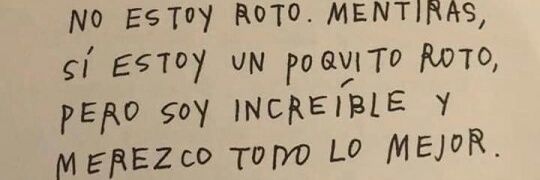 NO ESTOY ROTO. MENTIRAS,
SÍ ESTOY UN POQUITO ROTO,
PERO SOY INCREÍBLE Y
MEREZCO TODO LO MEJOR.